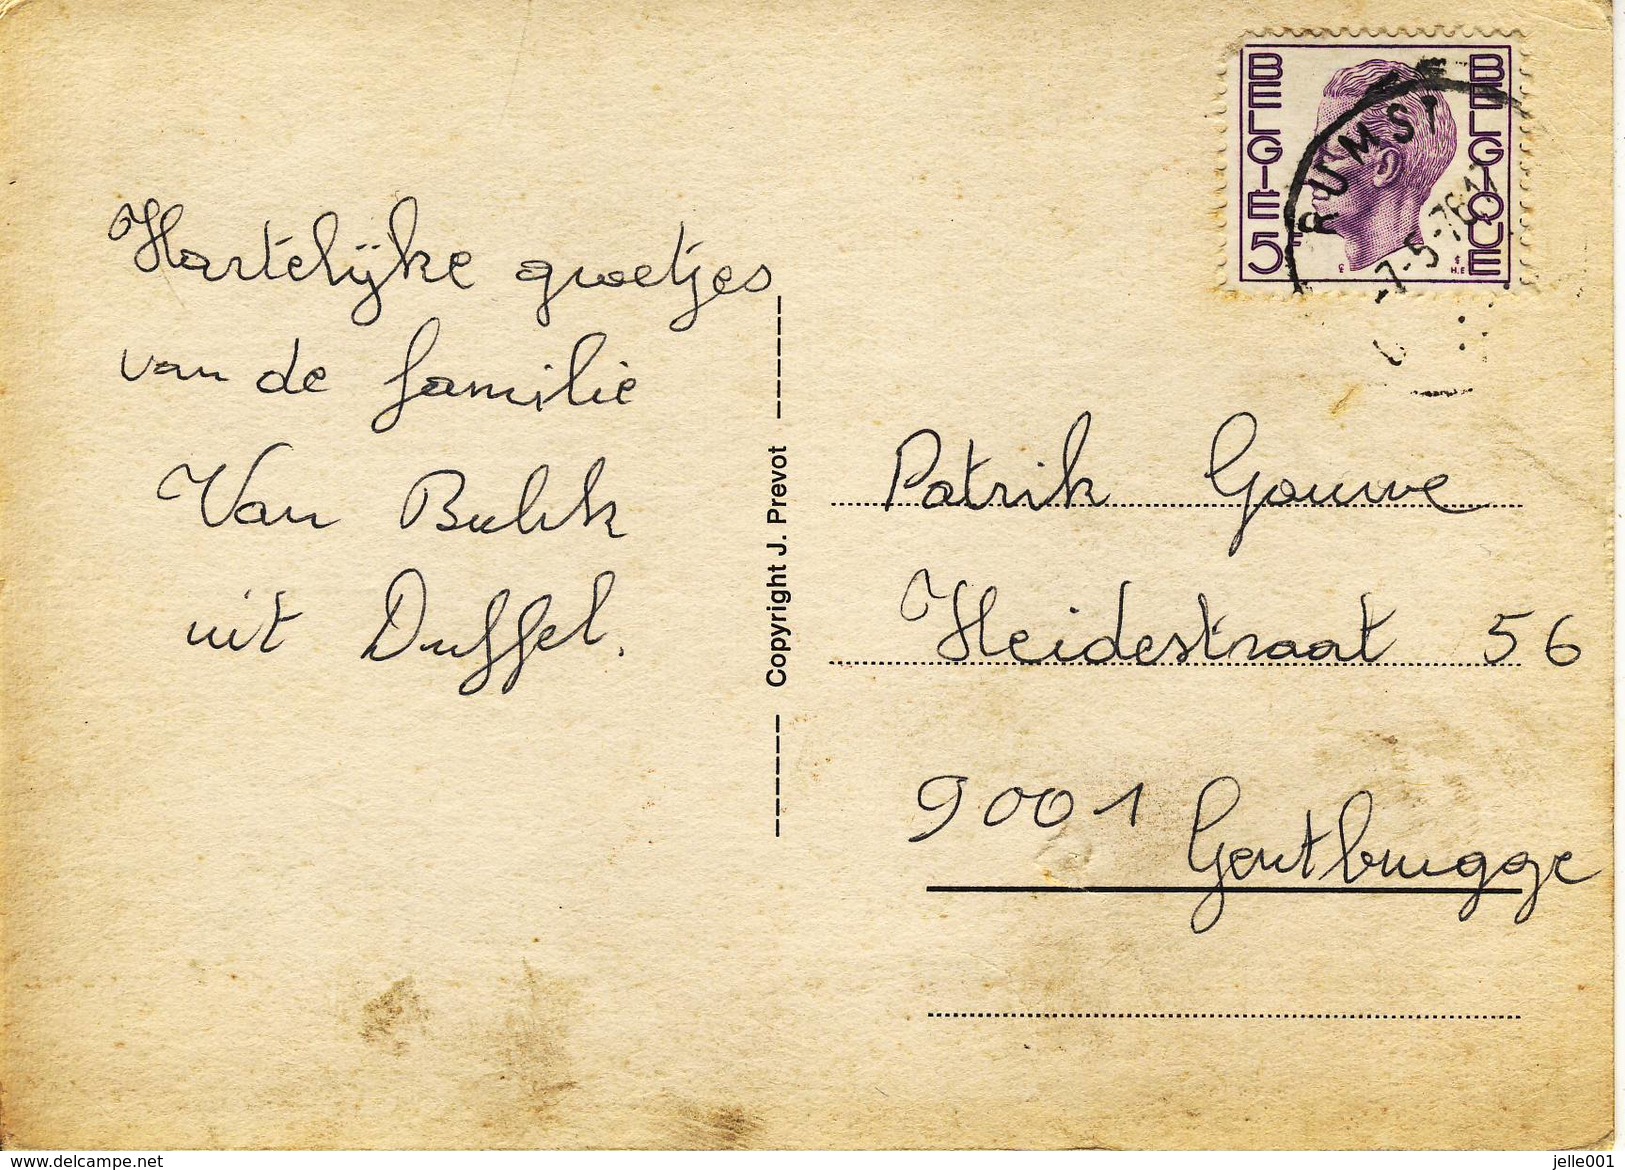 Hartelijke groetjes
van de familie
Van Bulck
uit Duffel.
Copyright J. Prevot
BELGIE 5F
BELGIQUE
RUMST
-7-5-76
Patrik Gouwe
Heidestraat 56
9001 Gentbrugge
www.delcampe.net
jelle001